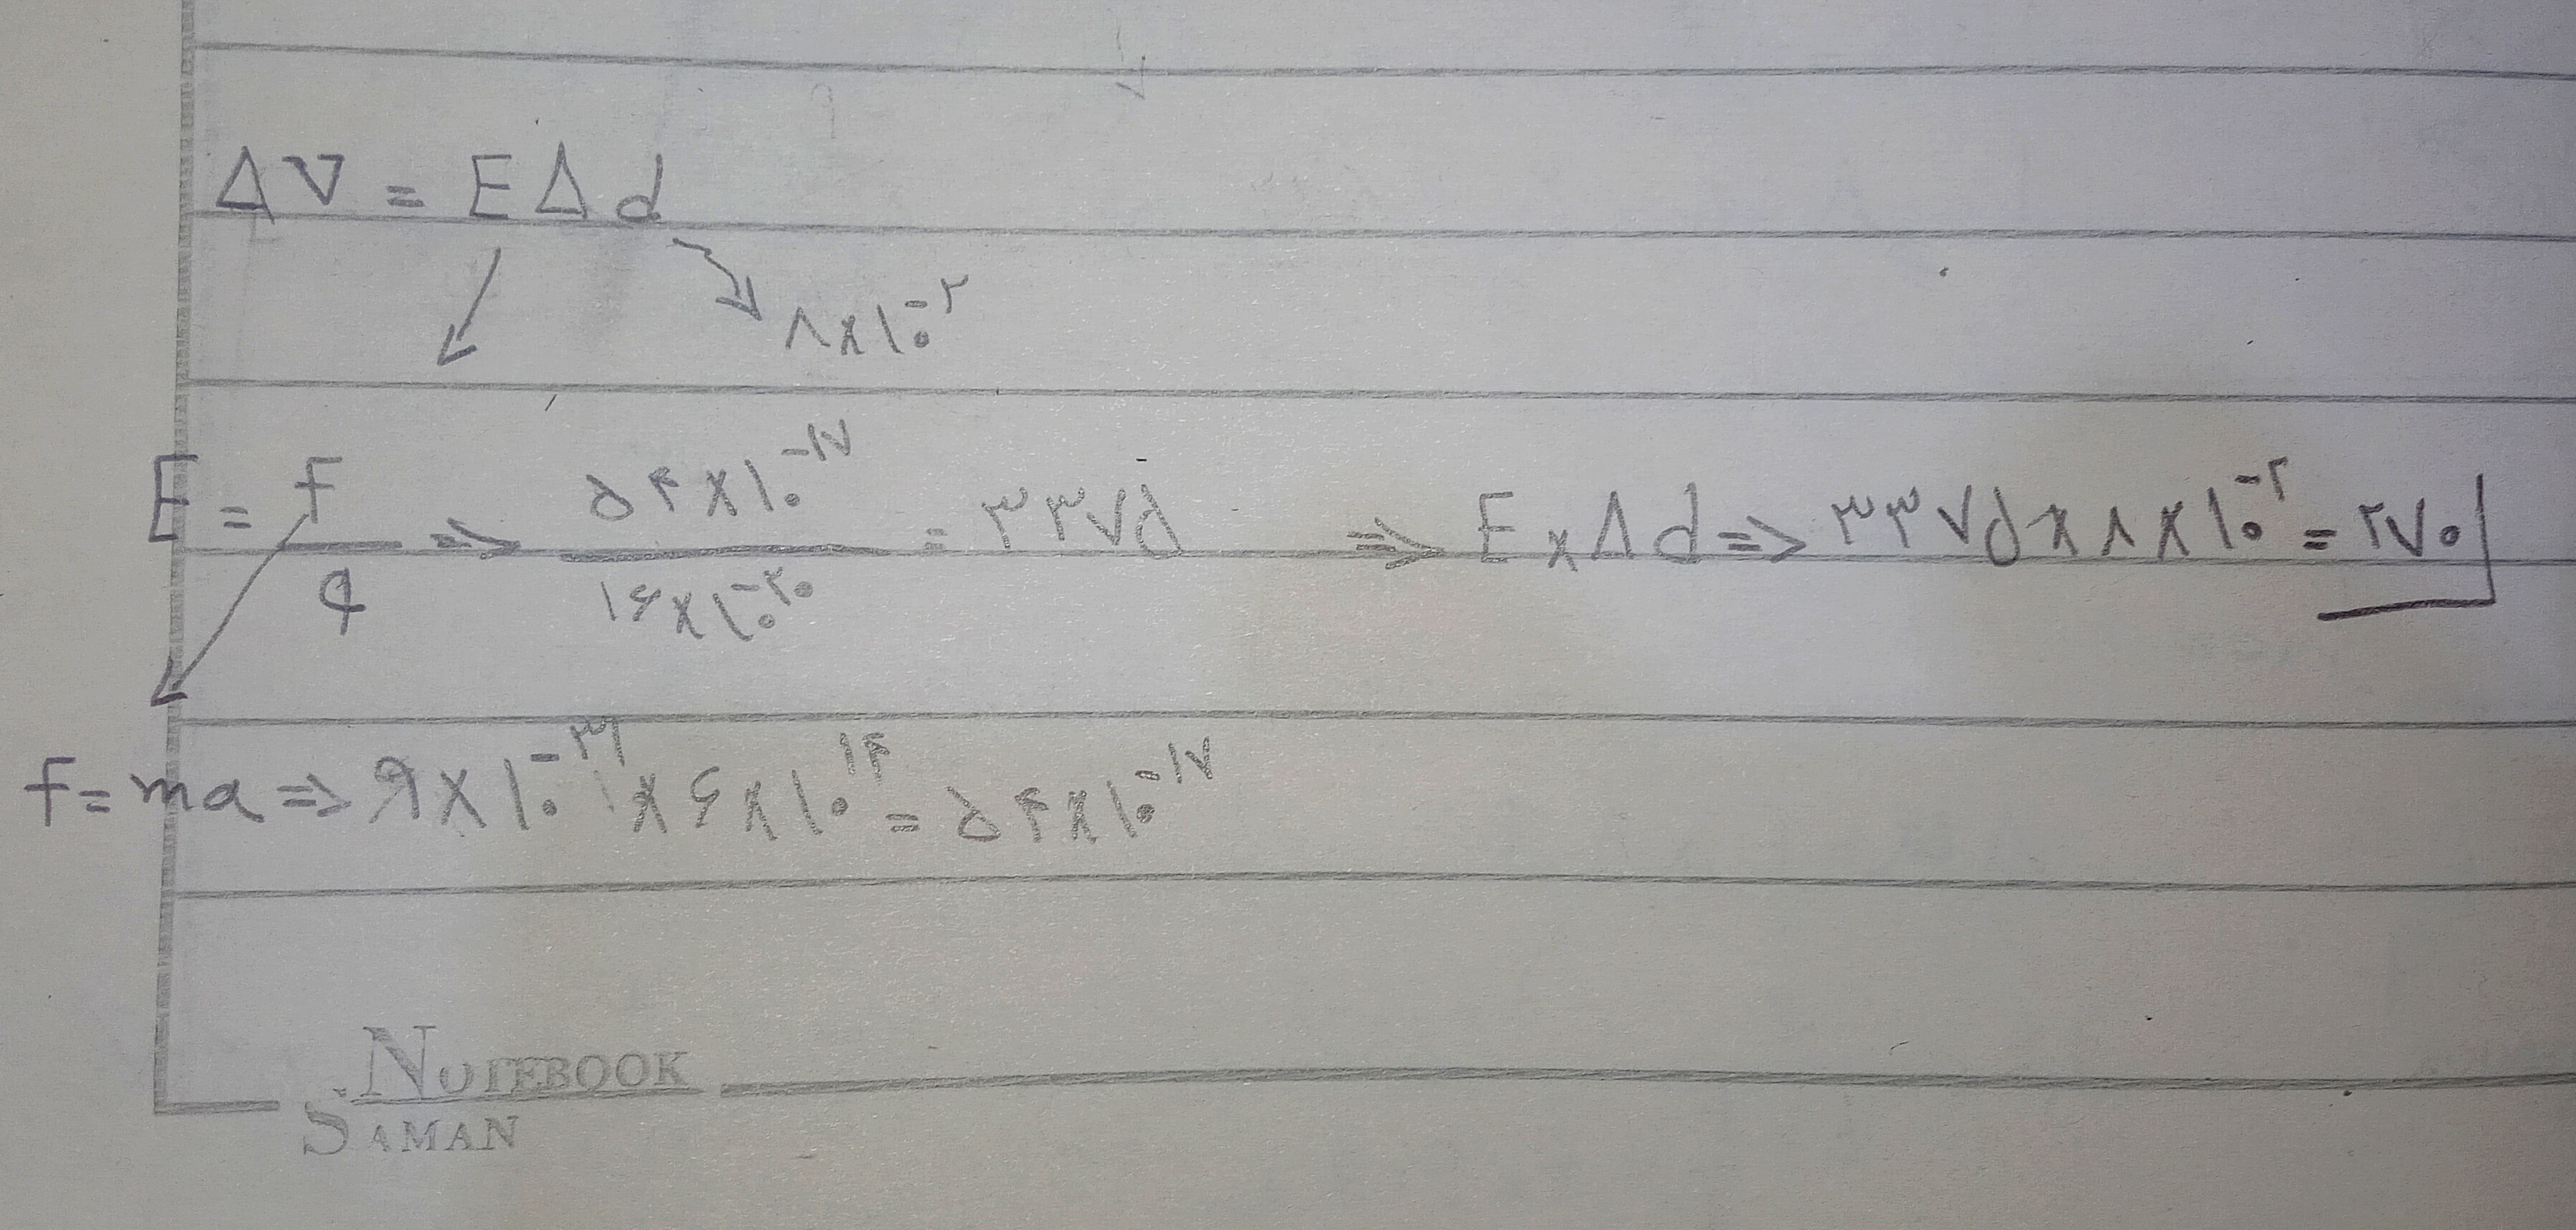 ΔV = EΔd
۸×۱۰⁻²
E = f/q => ۵۴×۱۰⁻¹⁷/۱۶×۱۰⁻²⁰ = ۳۳۷۵ => E × Δd => ۳۳۷۵×۸×۱۰⁻² = ۲۷۰
f = ma => ۹×۱۰⁻³¹ × ۶×۱۰¹⁴ = ۵۴×۱۰⁻¹⁷
NOTEBOOK
SAMAN